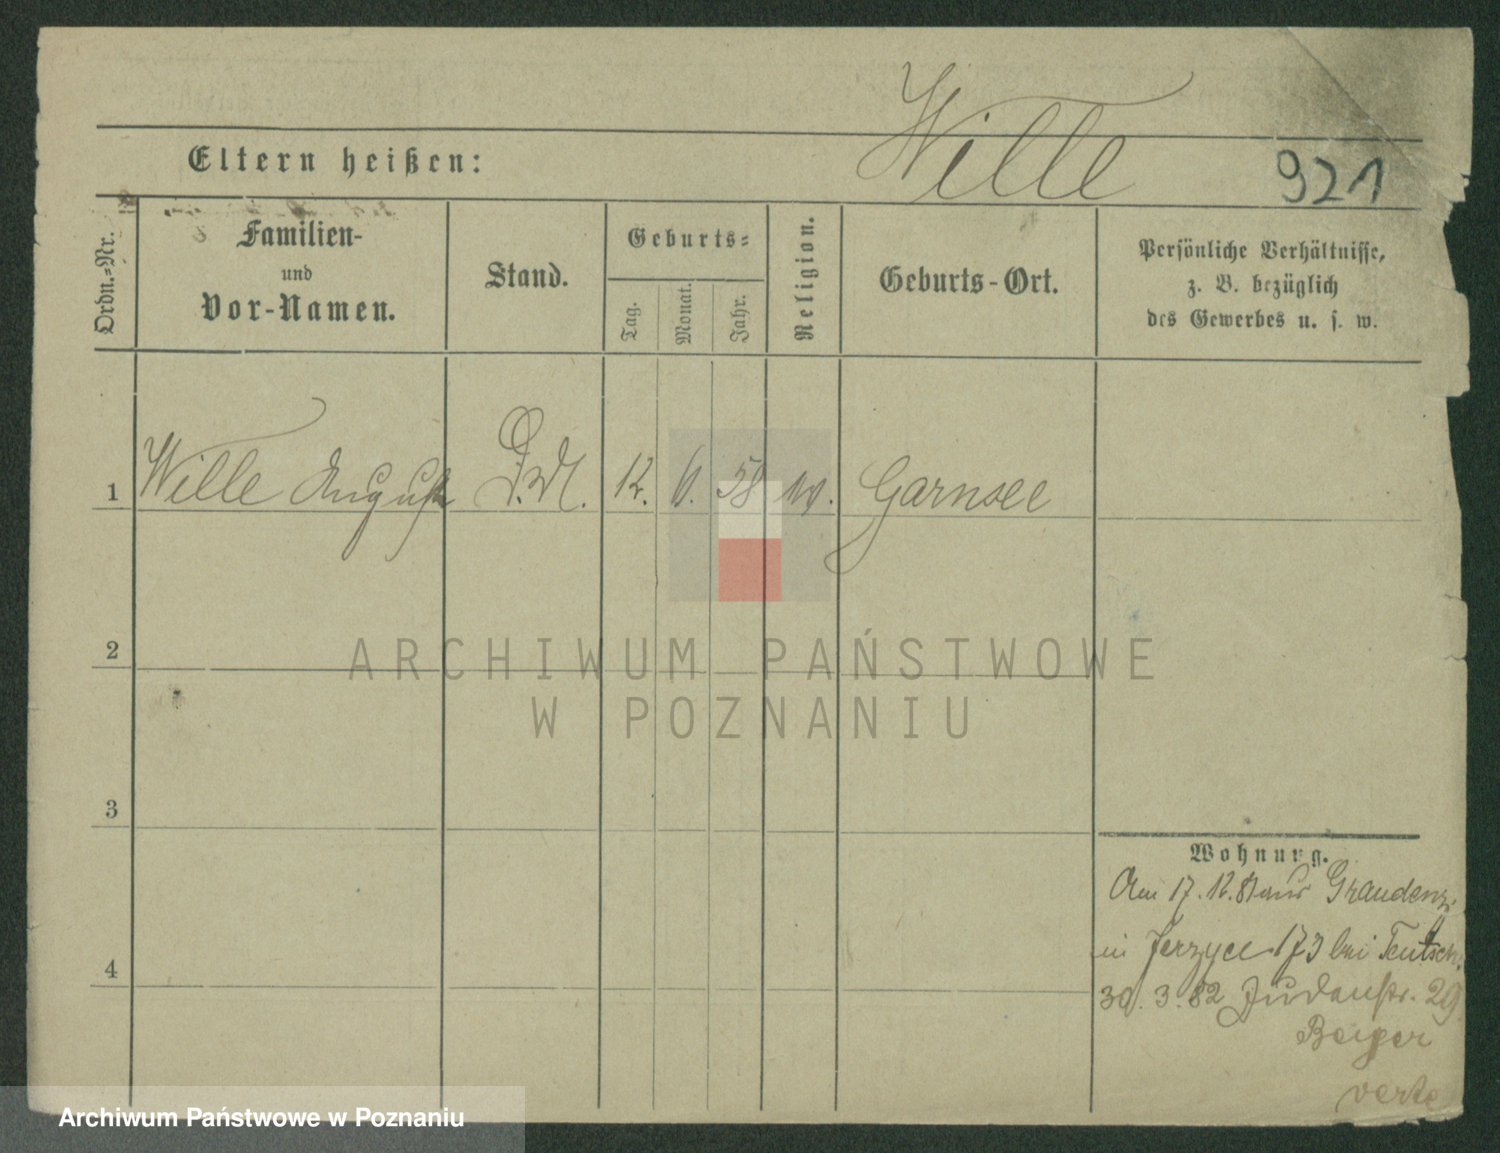 Wille
Eltern heißen:
921
Ordn.-Nr.
Familien-
und
Vor-Namen.
Stand.
Geburts-
Tag.
Monat.
Jahr.
Religion.
Geburts-Ort.
Persönliche Verhältnisse,
z. B. bezüglich
des Gewerbes u. s. w.
1 Wille August D.M. 12. 6. 58 Garnsee
2
ARCHIWUM PAŃSTWOWE
W POZNANIU
3
Wohnung.
Am 17.12.81 aus Graudenz
in Jerzyce 173 bei Teutsch.
4
30.3.82 Judenstr. 29
verte
Archiwum Państwowe w Poznaniu